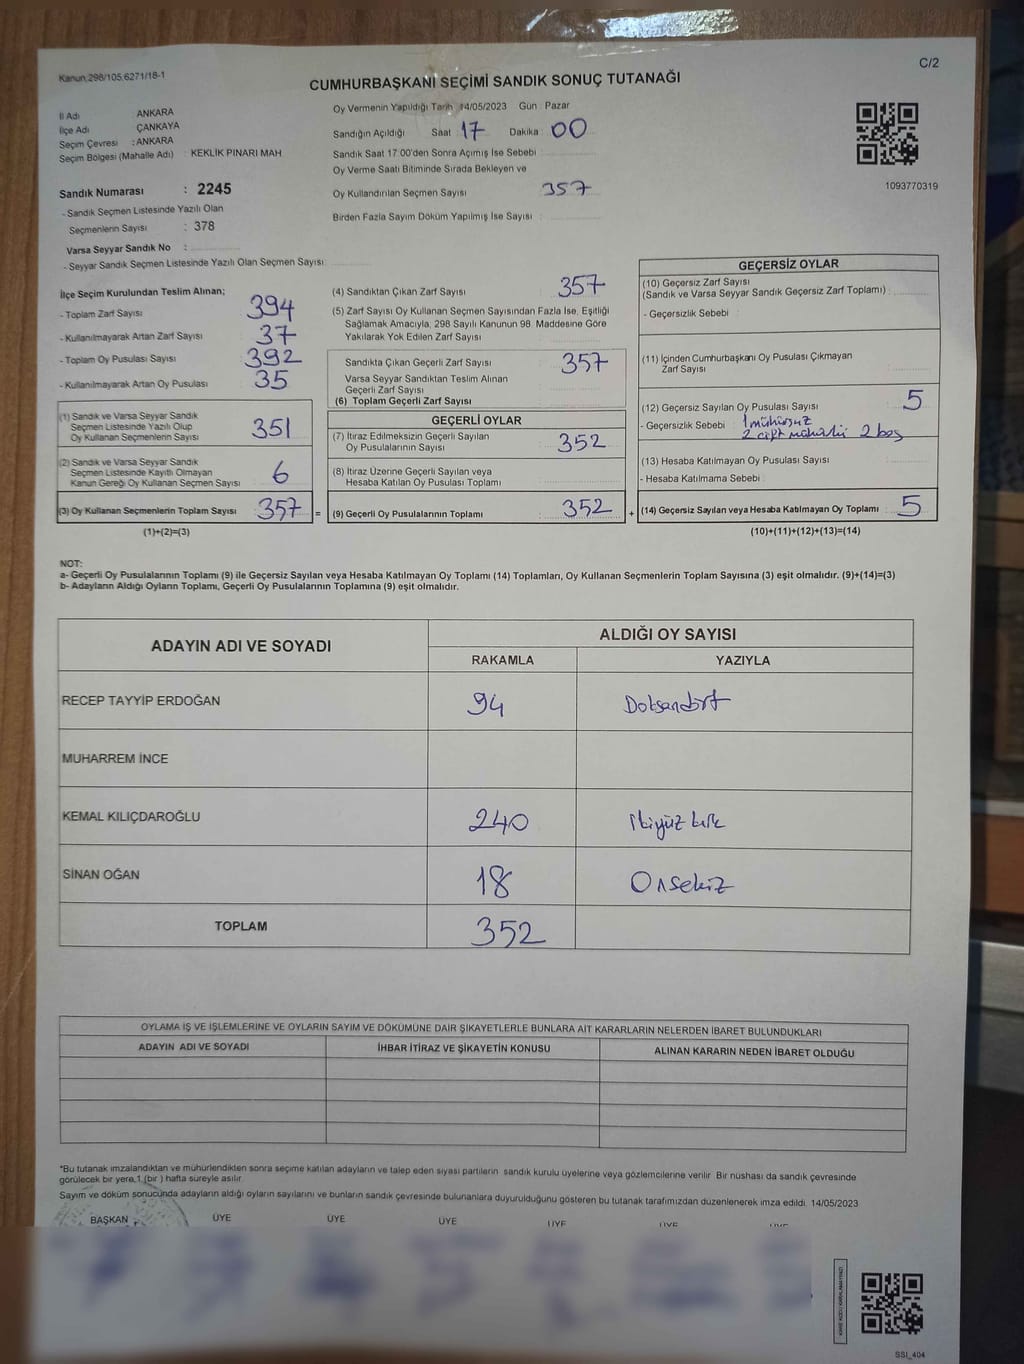 Kanun;298/105.6271/18-1
C/2
CUMHURBAŞKANI SEÇİMİ SANDIK SONUÇ TUTANAĞI
İl Adı ANKARA
İlçe Adı ÇANKAYA
Seçim Çevresi : ANKARA
Seçim Bölgesi (Mahalle Adı) : KEKLİK PINARI MAH
Sandık Numarası : 2245
- Sandık Seçmen Listesinde Yazılı Olan
Seçmenlerin Sayısı : 378
Varsa Seyyar Sandık No :
- Seyyar Sandık Seçmen Listesinde Yazılı Olan Seçmen Sayısı:
Oy Vermenin Yapıldığı Tarih :14/05/2023 Gün : Pazar
Sandığın Açıldığı Saat : 17 Dakika : 00
Sandık Saat 17:00'den Sonra Açımış İse Sebebi :
Oy Verme Saati Bitiminde Sırada Bekleyen ve
Oy Kullandırılan Seçmen Sayısı : 357
Birden Fazla Sayım Döküm Yapılmış İse Sayısı :
1093770319
İlçe Seçim Kurulundan Teslim Alınan;
- Toplam Zarf Sayısı : 394
- Kullanılmayarak Artan Zarf Sayısı : 37
- Toplam Oy Pusulası Sayısı : 392
- Kullanılmayarak Artan Oy Pusulası : 35
(1) Sandık ve Varsa Seyyar Sandık
Seçmen Listesinde Yazılı Olup
Oy Kullanan Seçmenlerin Sayısı : 351
(2) Sandık ve Varsa Seyyar Sandık
Seçmen Listesinde Kayıtlı Olmayan
Kanun Gereği Oy Kullanan Seçmen Sayısı : 6
(3) Oy Kullanan Seçmenlerin Toplam Sayısı : 357 =
(1)+(2)=(3)
(4) Sandıktan Çıkan Zarf Sayısı : 357
(5) Zarf Sayısı Oy Kullanan Seçmen Sayısından Fazla İse, Eşitliği
Sağlamak Amacıyla, 298 Sayılı Kanunun 98. Maddesine Göre
Yakılarak Yok Edilen Zarf Sayısı :
Sandıkta Çıkan Geçerli Zarf Sayısı : 357
Varsa Seyyar Sandıktan Teslim Alınan
Geçerli Zarf Sayısı :
(6) Toplam Geçerli Zarf Sayısı :
GEÇERLİ OYLAR
(7) İtiraz Edilmeksizin Geçerli Sayılan
Oy Pusulalarının Sayısı : 352
(8) İtiraz Üzerine Geçerli Sayılan veya
Hesaba Katılan Oy Pusulası Toplamı :
(9) Geçerli Oy Pusulalarının Toplamı : 352 +
GEÇERSİZ OYLAR
(10) Geçersiz Zarf Sayısı
(Sandık ve Varsa Seyyar Sandık Geçersiz Zarf Toplamı) :
- Geçersizlik Sebebi :
(11) İçinden Cumhurbaşkanı Oy Pusulası Çıkmayan
Zarf Sayısı :
(12) Geçersiz Sayılan Oy Pusulası Sayısı : 5
- Geçersizlik Sebebi : 1 mühürsüz
2 çift mühürlü 2 boş
(13) Hesaba Katılmayan Oy Pusulası Sayısı :
- Hesaba Katılmama Sebebi :
(14) Geçersiz Sayılan veya Hesaba Katılmayan Oy Toplamı : 5
(10)+(11)+(12)+(13)=(14)
NOT:
a- Geçerli Oy Pusulalarının Toplamı (9) ile Geçersiz Sayılan veya Hesaba Katılmayan Oy Toplamı (14) Toplamları, Oy Kullanan Seçmenlerin Toplam Sayısına (3) eşit olmalıdır. (9)+(14)=(3)
b- Adayların Aldığı Oyların Toplamı, Geçerli Oy Pusulalarının Toplamına (9) eşit olmalıdır.
ADAYIN ADI VE SOYADI
ALDIĞI OY SAYISI
RAKAMLA YAZIYLA
RECEP TAYYİP ERDOĞAN 94 Doksandört
MUHARREM İNCE
KEMAL KILIÇDAROĞLU 240 ikiyüz kırk
SİNAN OĞAN 18 Onsekiz
TOPLAM 352
OYLAMA İŞ VE İŞLEMLERİNE VE OYLARIN SAYIM VE DÖKÜMÜNE DAİR ŞİKAYETLERLE BUNLARA AİT KARARLARIN NELERDEN İBARET BULUNDUKLARI
ADAYIN ADI VE SOYADI İHBAR İTİRAZ VE ŞİKAYETİN KONUSU ALINAN KARARIN NEDEN İBARET OLDUĞU
*Bu tutanak imzalandıktan ve mühürlendikten sonra seçime katılan adayların ve talep eden siyasi partilerin sandık kurulu üyelerine veya gözlemcilerine verilir. Bir nüshası da sandık çevresinde
görülecek bir yere,1 (bir ) hafta süreyle asılır.
Sayım ve döküm sonucunda adayların aldığı oyların sayılarını ve bunların sandık çevresinde bulunanlara duyurulduğunu gösteren bu tutanak tarafımızdan düzenlenerek imza edildi. 14/05/2023
BAŞKAN ÜYE ÜYE ÜYE ÜYE ÜYE ÜYE
SSI_404